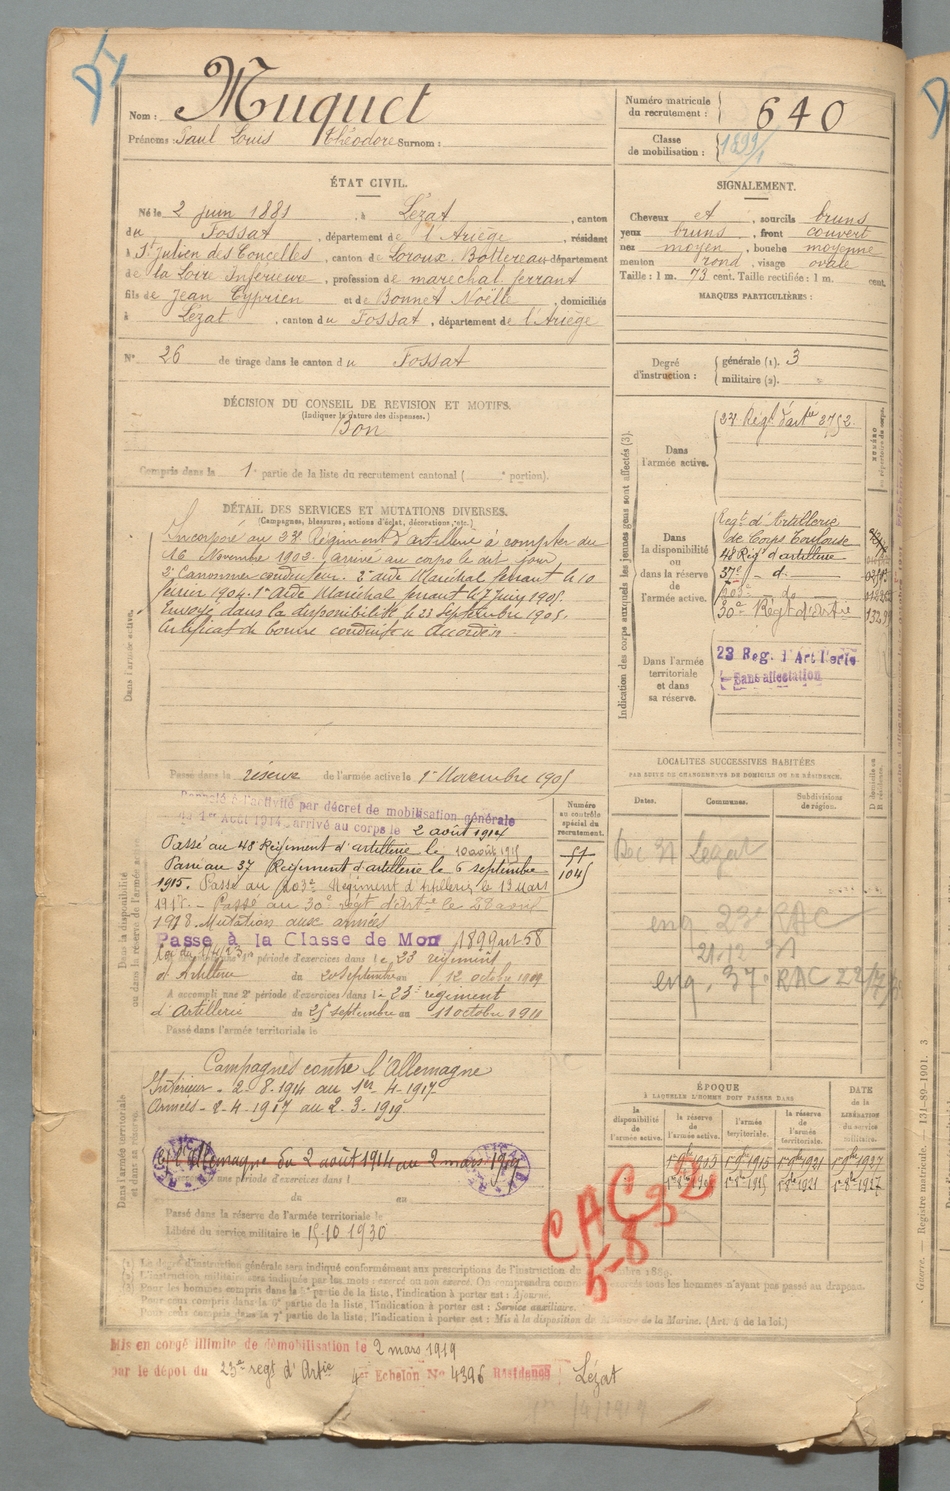 Nom : Muquet
Prénoms : Paul Louis Théodore Surnom :
Numéro matricule
du recrutement : 640
Classe
de mobilisation : 1899/1
ÉTAT CIVIL.
Né le 2 juin 1881, à Lézat, canton
du Fossat, département de l'Ariège, résidant
à St Julien des Concelles, canton de Loroux-Bottereau département
de la Loire Inférieure, profession de maréchal ferrant
fils de Jean Cyprien et de Bonnet Noëlle, domiciliés
à Lézat, canton du Fossat, département de l'Ariège
N° 26 de tirage dans le canton du Fossat
SIGNALEMENT.
Cheveux et, sourcils bruns
yeux bruns, front couvert
nez moyen, bouche moyenne
menton rond, visage ovale
Taille : 1 m. 73 cent. Taille rectifiée : 1 m. cent.
MARQUES PARTICULIÈRES :
Degré
d'instruction :
générale (1). 3
militaire (2).
DÉCISION DU CONSEIL DE REVISION ET MOTIFS.
(Indiquer la nature des dispenses.)
Bon
Compris dans la 1e partie de la liste du recrutement cantonal ( e portion).
DÉTAIL DES SERVICES ET MUTATIONS DIVERSES.
(Campagnes, blessures, actions d'éclat, décorations, etc.)
Dans l'armée active.
Incorporé au 23e Régiment d'artillerie à compter du
16 Novembre 1902. arrivé au corps le dit jour
2e Canonnier conducteur. 2e aide Maréchal ferrant le 10
février 1904. 1er Aide Maréchal ferrant le 7 juin 1905.
Envoyé dans la disponibilité le 23 Septembre 1905.
Certificat de bonne conduite Accordé.
Passé dans la réserve de l'armée active le 1er Novembre 1905
Indication des corps auxquels les jeunes gens sont affectés (3).
Dans
l'armée active.
23e Régt d'artie 3752
Dans
la disponibilité
ou
dans la réserve
de
l'armée active.
Régt d'Artillerie
de Corps Toulouse
48 Régt d'artillerie
37e - d.
203e - do
30e Régt d'Artie
Dans l'armée
territoriale
et dans
sa réserve.
23 Reg. d'Artillerie
Sans affectation
LOCALITÉS SUCCESSIVES HABITÉES
PAR SUITE DE CHANGEMENTS DE DOMICILE OU DE RÉSIDENCE.
Dates. Communes. Subdivisions
de région.
Lezat
23e RAC
21.12
37e RAC
Dans la disponibilité
ou dans la réserve de l'armée active
Numéro
au contrôle
spécial du
recrutement.
Rappelé à l'activité par décret de mobilisation générale
du 1er Août 1914, arrivé au corps le 2 août 1914
Passé au 48 Régiment d'artillerie le 10 août 1915
Passé au 37 Régiment d'artillerie le 6 septembre
1915. Passé au 203e Régiment d'Artillerie le 19 Mars
1918. - Passé au 30e régt d'Artie le 28 avril
1918. Mutation aux armées
Passé à la Classe de Mon 1899 art 58
période d'exercices dans le 23 régiment
d'Artillerie du 20 septembre au 12 octobre 1909
A accompli une 2e période d'exercices dans le 23e régiment
d'Artillerie du 25 septembre au 11 octobre 1911
Passé dans l'armée territoriale le
Dans l'armée territoriale
et dans sa réserve.
Campagnes contre l'Allemagne
Intérieur - 2-8-1914 au 1er-4-1917
Armées - 2-4-1917 au 2-3-1919
Allemagne du 2 août 1914 au 2 mars 1919
une période d'exercices dans l
du au
Passé dans la réserve de l'armée territoriale le
Libéré du service militaire le 15-10 1930
ÉPOQUE
À LAQUELLE L'HOMME DOIT PASSER DANS
la
disponibilité
de
l'armée active.
la réserve
de
l'armée active.
l'armée
territoriale.
la réserve
de
l'armée
territoriale.
DATE
de la
LIBÉRATION
du service
militaire.
CAC 32
5-8
Le degré d'instruction générale sera indiqué conformément aux prescriptions de l'instruction du
L'instruction militaire sera indiquée par les mots : exercé ou non exercé.
Pour les hommes compris dans la partie de la liste, l'indication à porter est : Ajourné.
Pour ceux compris dans la 6e partie de la liste, l'indication à porter est : Service auxiliaire.
Pour ceux compris dans la 7e partie de la liste, l'indication à porter est : Mis à la disposition du Ministre de la Marine. (Art. 4 de la loi.)
Mis en congé illimité de démobilisation le 2 mars 1919
par le dépôt du 23e régt d'Artie 4e Echelon No 4396 Résidence Lézat
Guerre. — Registre matricule. — 131-89-1901. 3